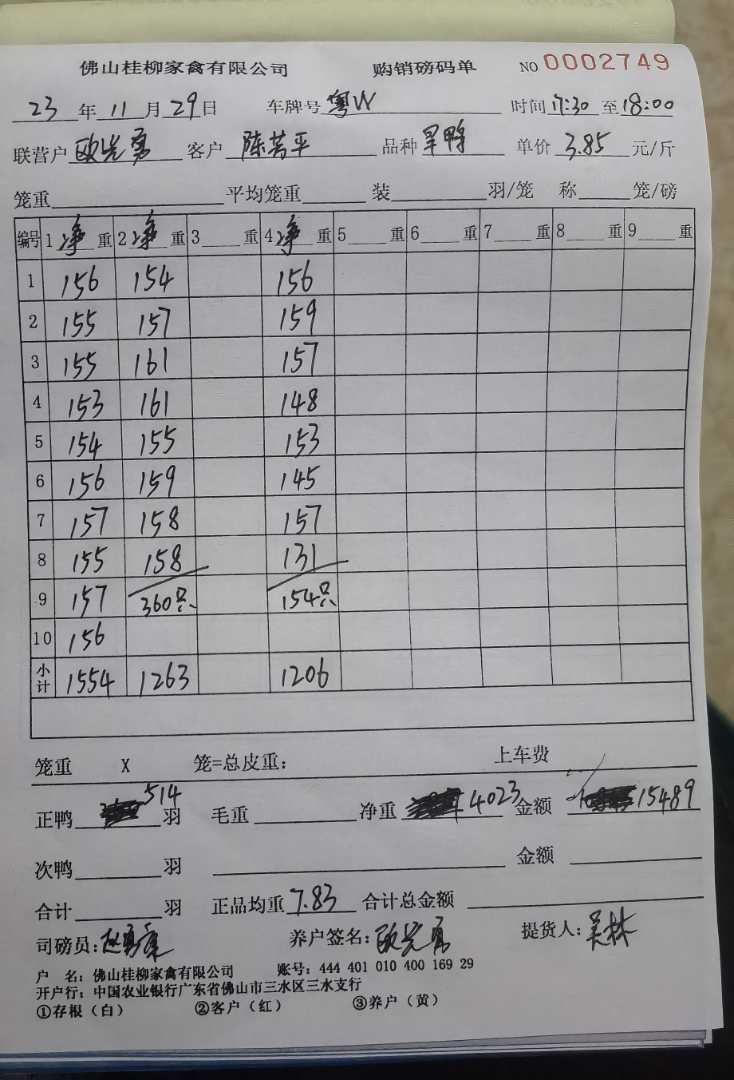 佛山桂柳家禽有限公司 购销磅码单 NO 0002749
23 年 11 月 29 日 车牌号 粤W 时间 17:30 至 18:00
联营户 欧光勇 客户 陈芳平 品种 旱鸭 单价 3.85 元/斤
笼重 平均笼重 装 羽/笼 称 笼/磅
编号 1 净 重 2 净 重 3 重 4 净 重 5 重 6 重 7 重 8 重 9 重
1 156 154 156
2 155 157 159
3 155 161 157
4 153 161 148
5 154 155 153
6 156 159 145
7 157 158 157
8 155 158 131
9 157 360只 154只
10 156
小计 1554 1263 1206
笼重 X 笼=总皮重: 上车费
正鸭 514 羽 毛重 净重 4023 金额 15489
次鸭 羽 金额
合计 羽 正品均重 7.83 合计总金额
司磅员: 养户签名: 欧光勇 提货人: 吴林
户 名: 佛山桂柳家禽有限公司 账号: 444 401 010 400 169 29
开户行: 中国农业银行广东省佛山市三水区三水支行
①存根（白） ②客户（红） ③养户（黄）